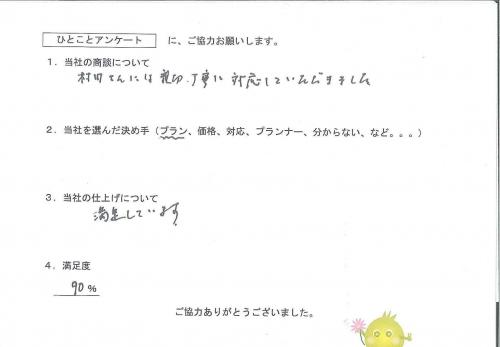 ひとことアンケート に、ご協力お願いします。
1．当社の商談について
村田さんには親切、丁寧に対応していただきました
2．当社を選んだ決め手（プラン、価格、対応、プランナー、分からない、など。。。）
3．当社の仕上げについて
満足しています。
4．満足度
90%
ご協力ありがとうございました。